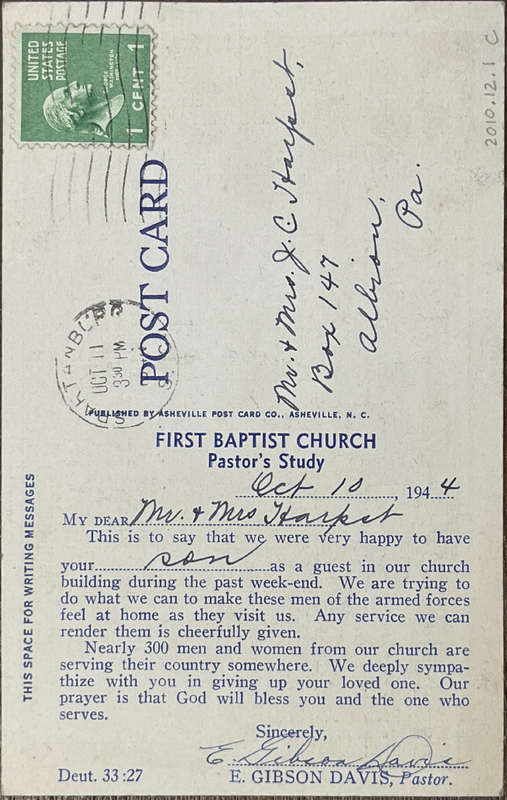 UNITED
STATES
POSTAGE
1 CENT 1
2010.12.1 C
POST CARD
SPARTANBURG
OCT 11
3 30 PM
S.C.
Mr. & Mrs. J. C. Harpst,
Box 147
Albion,
Pa.
PUBLISHED BY ASHEVILLE POST CARD CO., ASHEVILLE, N. C.
THIS SPACE FOR WRITING MESSAGES
FIRST BAPTIST CHURCH
Pastor's Study
Oct 10, 1944
MY DEAR Mr. & Mrs Harpst
This is to say that we were very happy to have
your son as a guest in our church
building during the past week-end. We are trying to
do what we can to make these men of the armed forces
feel at home as they visit us. Any service we can
render them is cheerfully given.
Nearly 300 men and women from our church are
serving their country somewhere. We deeply sympa-
thize with you in giving up your loved one. Our
prayer is that God will bless you and the one who
serves.
Sincerely,
E. Gibson Davis
Deut. 33:27 E. GIBSON DAVIS, Pastor.